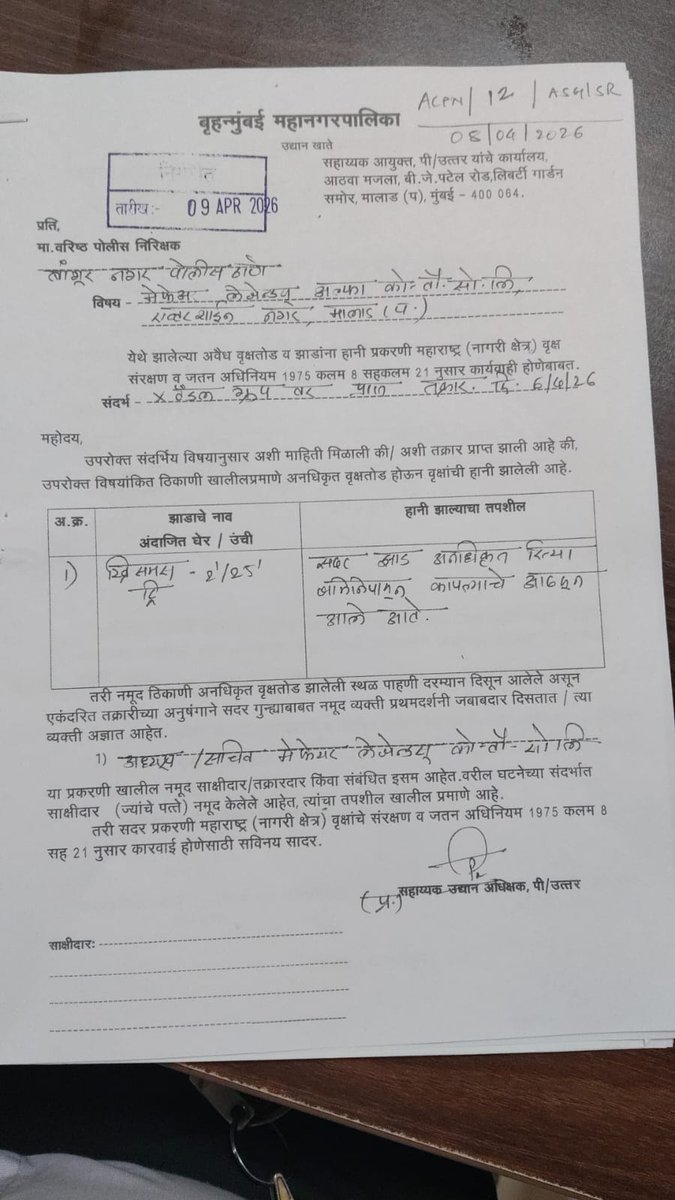 ACPN/12/ASG/SR
बृहन्मुंबई महानगरपालिका
08/04/2026
उद्यान खाते
सहाय्यक आयुक्त, पी/उत्तर यांचे कार्यालय,
आठवा मजला, बी.जे.पटेल रोड,लिबर्टी गार्डन
समोर, मालाड (प), मुंबई - 400 064.
तारीख:- 09 APR 2026
प्रति,
मा.वरिष्ठ पोलीस निरिक्षक
बांगूर नगर पोलीस ठाणे
विषय - लेजेन्ड्यू अल्फा को-सो.लि,
नगर, मालाड (प.)
येथे झालेल्या अवैध वृक्षतोड व झाडांना हानी प्रकरणी महाराष्ट्र (नागरी क्षेत्र) वृक्ष
संरक्षण व जतन अधिनियम 1975 कलम 8 सहकलम 21 नुसार कार्यवाही होणेबाबत.
संदर्भ - वर तक्रार. दि. 6/4/26
महोदय,
उपरोक्त संदर्भिय विषयानुसार अशी माहिती मिळाली की/ अशी तक्रार प्राप्त झाली आहे की,
उपरोक्त विषयांकित ठिकाणी खालीलप्रमाणे अनधिकृत वृक्षतोड होऊन वृक्षांची हानी झालेली आहे.
अ.क्र. झाडाचे नाव हानी झाल्याचा तपशील
अंदाजित घेर / उंची
1) ख्रिसमस - 2'/25' सदर झाड अनधिकृत रित्या
ट्रि कापल्याचे आढळून
आले आहे.
तरी नमूद ठिकाणी अनधिकृत वृक्षतोड झालेली स्थळ पाहणी दरम्यान दिसून आलेले असून
एकंदरित तक्रारीच्या अनुषंगाने सदर गुन्ह्याबाबत नमूद व्यक्ती प्रथमदर्शनी जबाबदार दिसतात / त्या
व्यक्ती अज्ञात आहेत.
1) अध्यक्ष /सचिव मेफेयर लेजेन्ड्यू को-सो लि
या प्रकरणी खालील नमूद साक्षीदार/तक्रारदार किंवा संबंधित इसम आहेत.वरील घटनेच्या संदर्भात
साक्षीदार (ज्यांचे पत्ते) नमूद केलेले आहेत, त्यांचा तपशील खालील प्रमाणे आहे.
तरी सदर प्रकरणी महाराष्ट्र (नागरी क्षेत्र) वृक्षांचे संरक्षण व जतन अधिनियम 1975 कलम 8
सह 21 नुसार कारवाई होणेसाठी सविनय सादर.
(प्र.) सहाय्यक उद्यान अधिक्षक, पी/उत्तर
साक्षीदारः